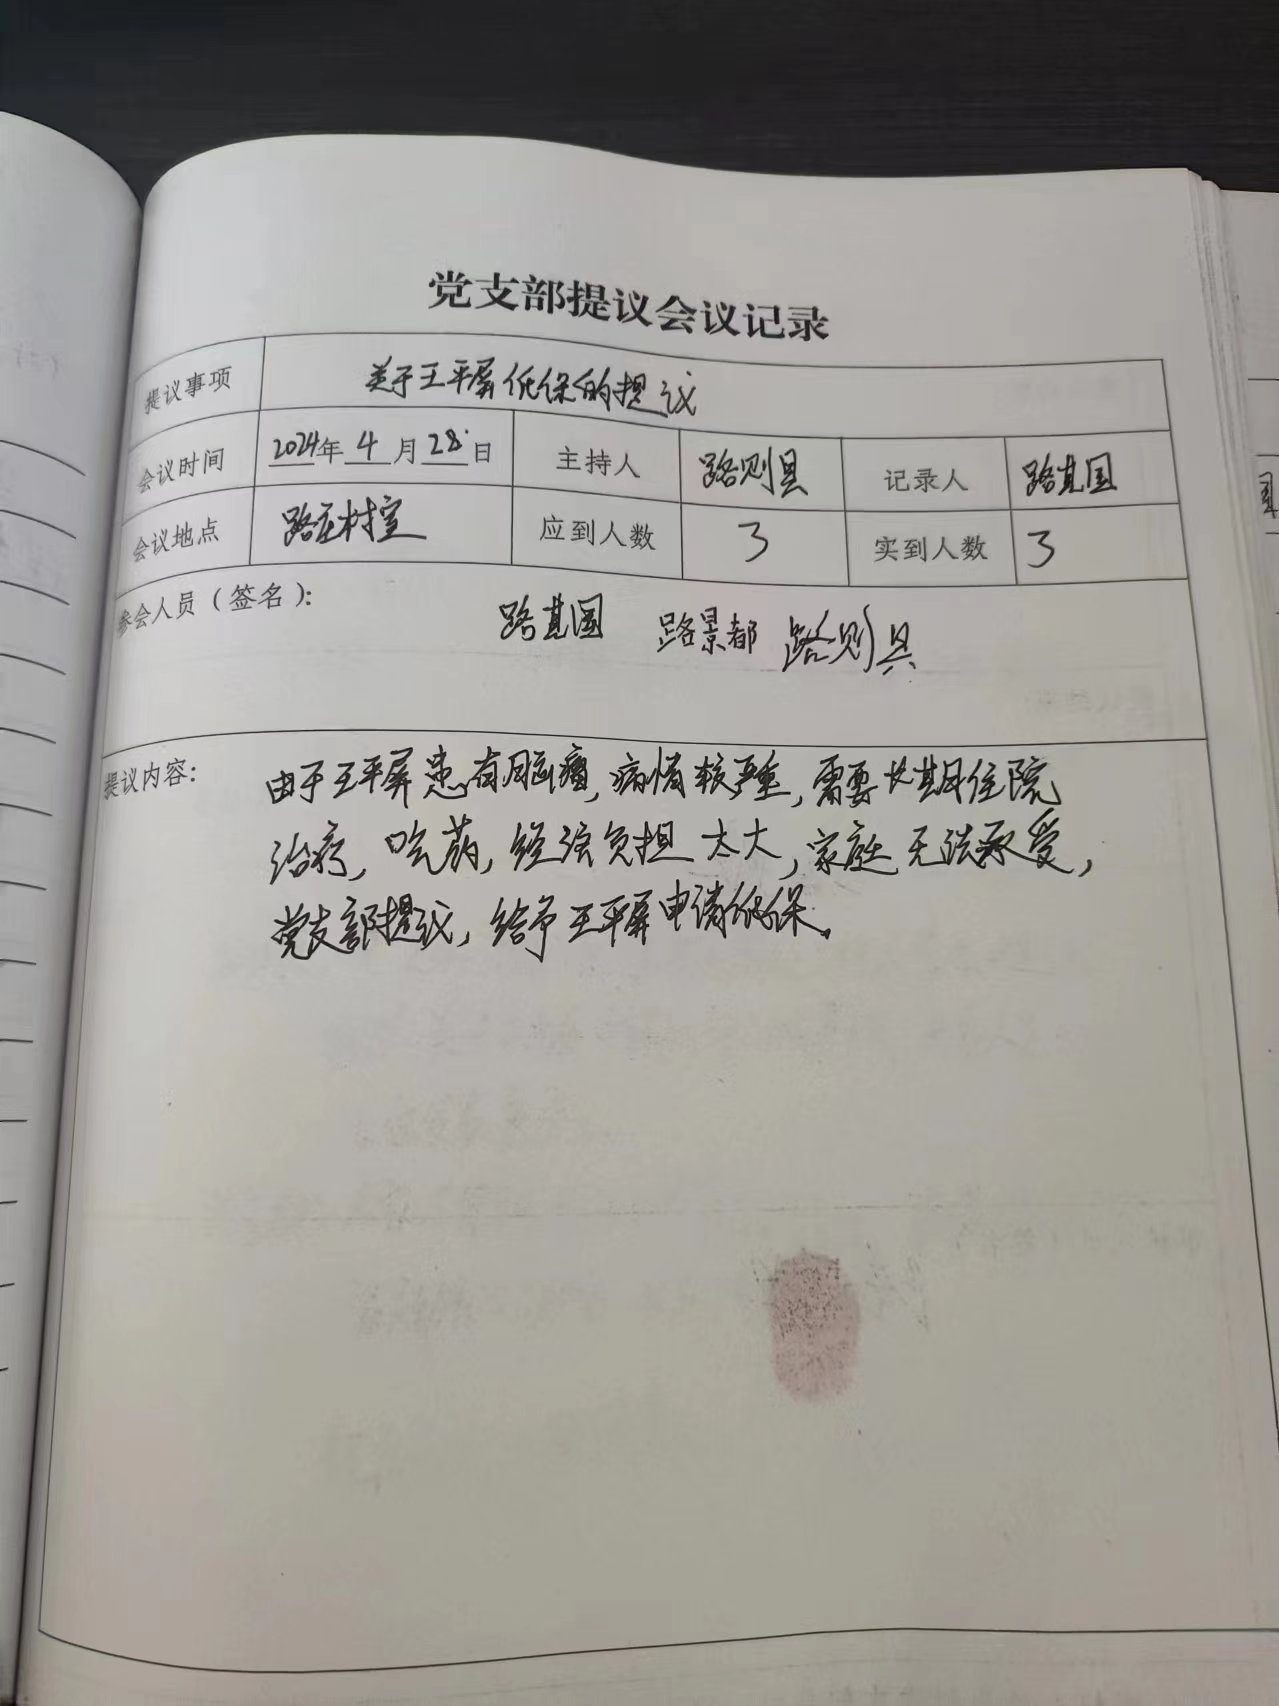 党支部提议会议记录
提议事项 关于王平屏低保的提议
会议时间 2024年4月28日 主持人 路则具 记录人 路其国
会议地点 路庄村室 应到人数 3 实到人数 3
参会人员（签名）： 路其国 路景都 路则具
提议内容： 由于王平屏患有脑瘤,病情较严重,需要长期住院
治疗,吃药,经济负担太大,家庭无法承受,
党支部提议,给予王平屏申请低保。